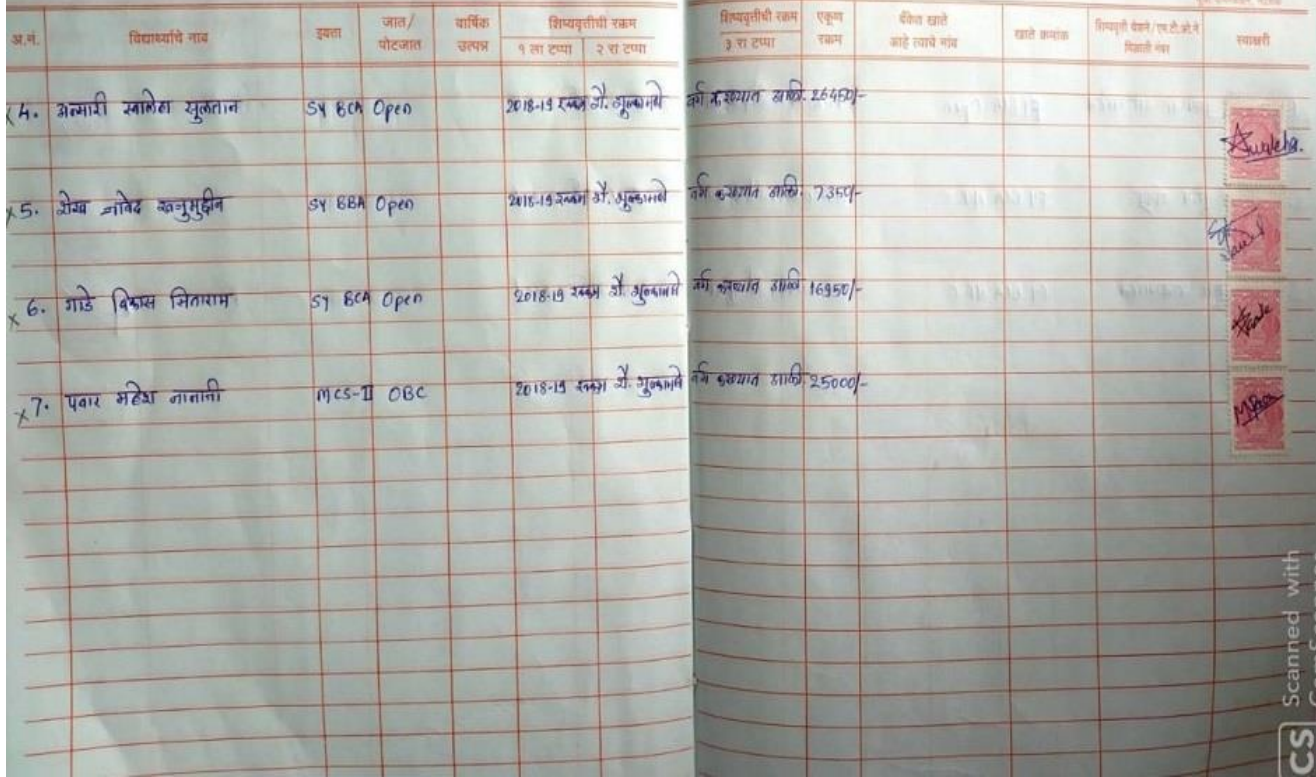 अ.नं. विद्यार्थ्यांचे नाव इयत्ता जात/पोटजात वार्षिक उत्पन्न शिष्यवृत्तीची रक्कम १ ला टप्पा २ रा टप्पा शिष्यवृत्तीची रक्कम ३ रा टप्पा एकूण रक्कम बँकेत खाते आहे त्याचे नाव खाते क्रमांक स्वाक्षरी
4. अन्सारी सुलतान SY BCA Open 2018-19 रक्कम शै. शुल्कामध्ये वर्ग करण्यात आली. 26450/-
5. शेख जावेद SY BBA Open 2018-19 रक्कम शै. शुल्कामध्ये वर्ग करण्यात आली. 7350/-
6. गाडे विकास सिताराम SY BCA Open 2018-19 रक्कम शै. शुल्कामध्ये वर्ग करण्यात आली 16950/-
7. पवार महेश नानाजी MCS-II OBC 2018-19 रक्कम शै. शुल्कामध्ये वर्ग करण्यात आली. 25000/-
CS Scanned with